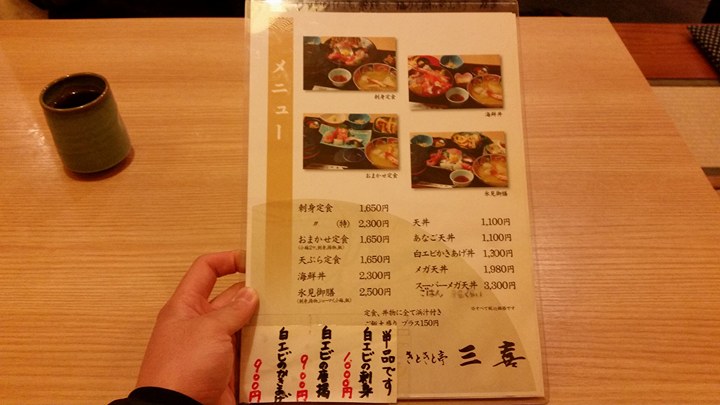 メニュー
刺身定食
海鮮丼
おまかせ定食
氷見御膳
刺身定食 1,650円
〃 (特) 2,300円
おまかせ定食 1,650円
天ぷら定食 1,650円
海鮮丼 2,300円
氷見御膳 2,500円
天丼 1,100円
あなご天丼 1,100円
白エビかきあげ丼 1,300円
メガ天丼 1,980円
スーパーメガ天丼 3,300円
定食、丼物に全て浜汁付き
プラス150円
きときと亭 三喜
単品です
白エビの刺身 1,000円
白エビの唐揚 900円
白エビのかきあげ 900円